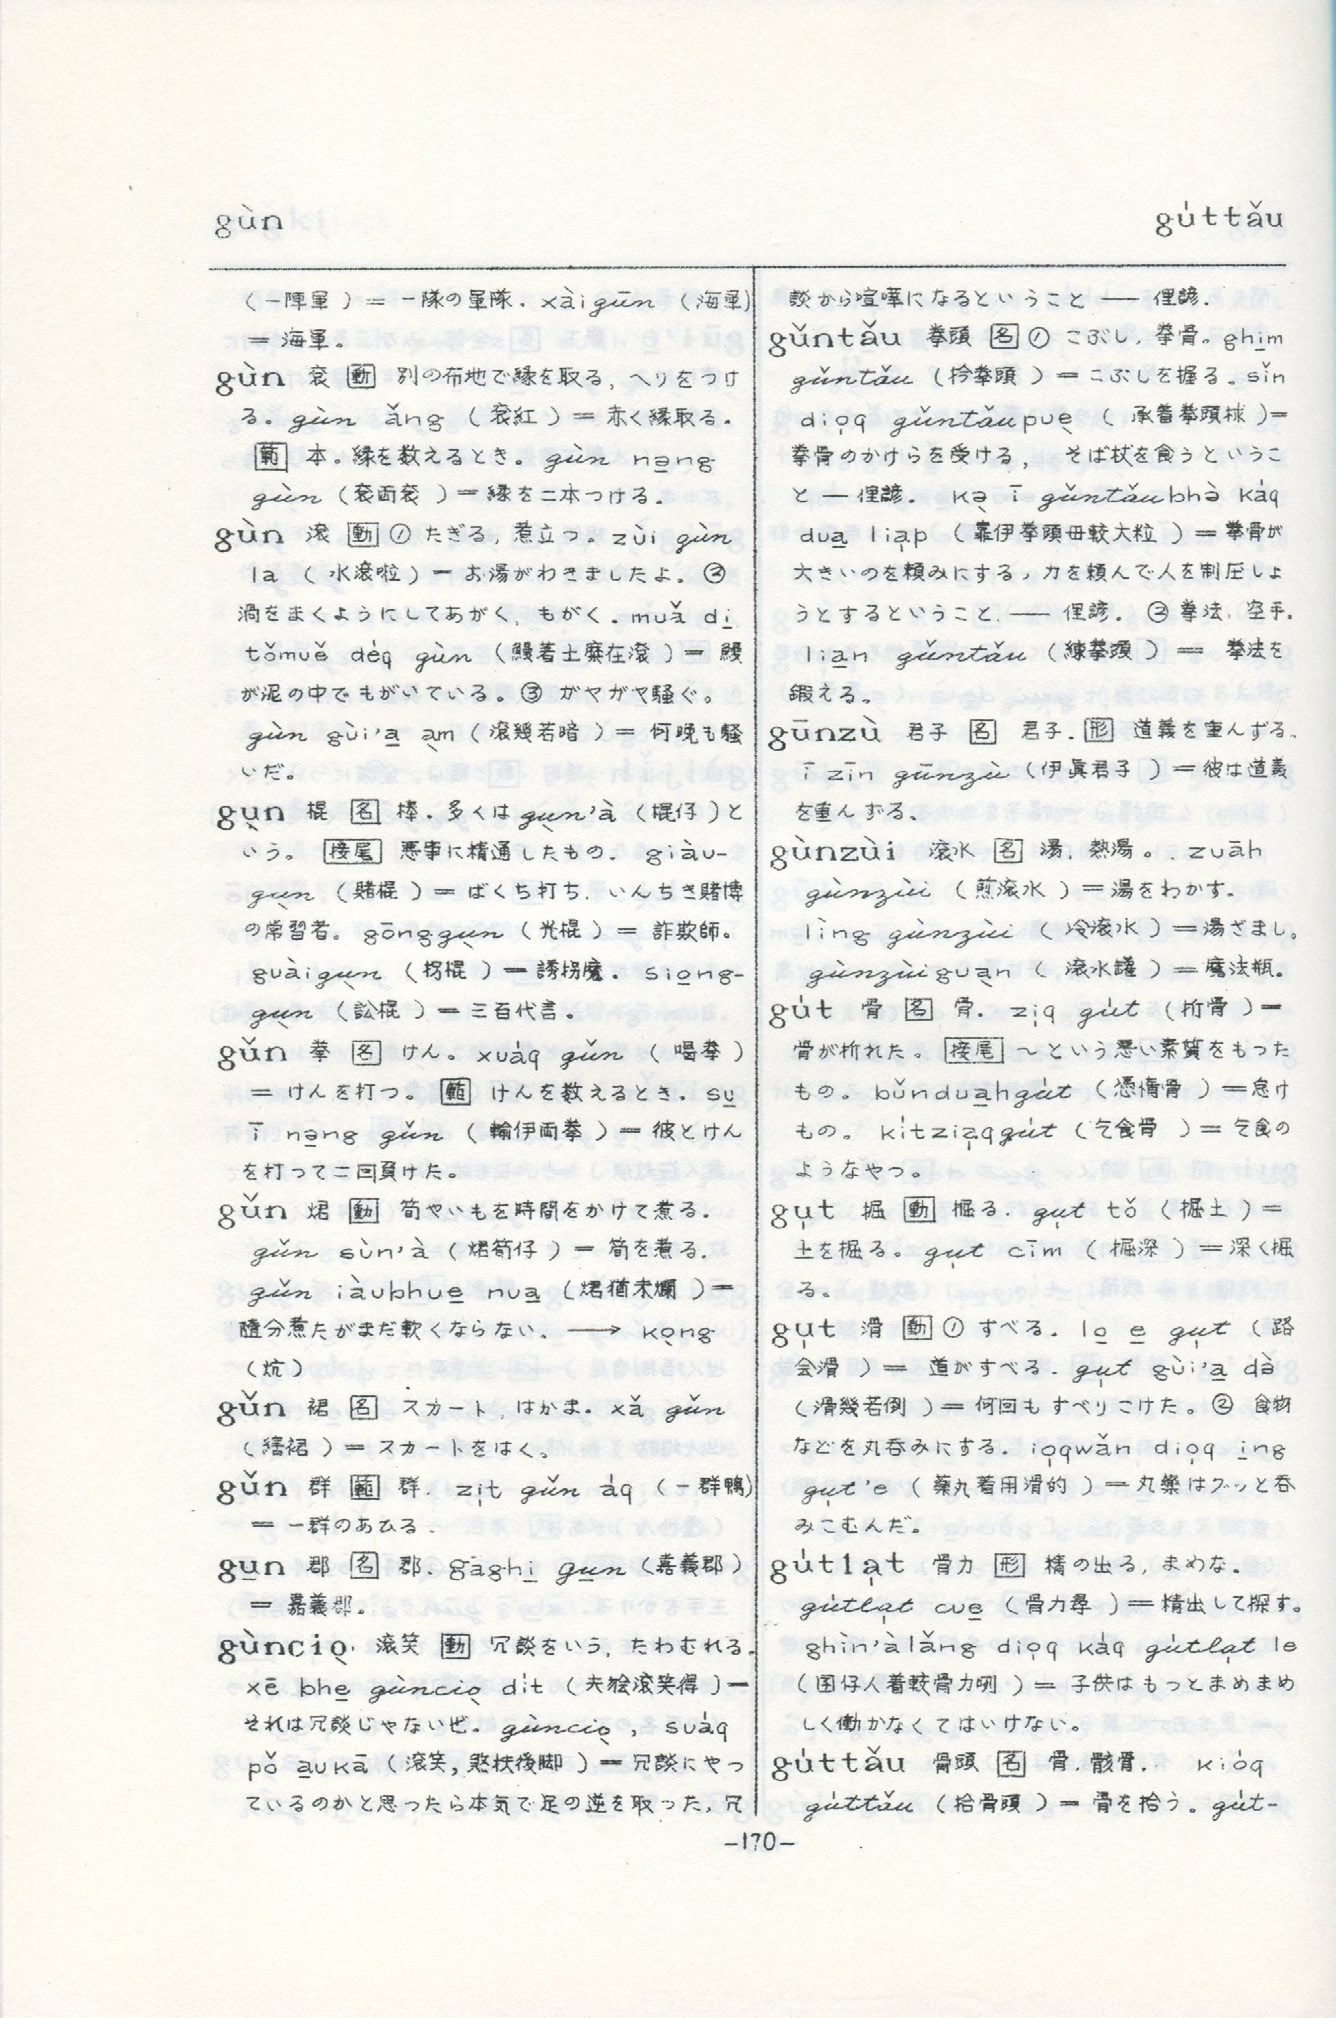 gùn
gu̍ttǎu
(一陣軍)＝一隊の軍隊. xàigūn (海軍)
＝海軍。
gùn 袞 動 別の布地で縁を取る, ヘリをつけ
る。gùn ǎng (袞紅)＝赤く縁取る.
範 本。縁を数えるとき。gùn nə̱ng
gùn (袞両袞)＝縁を二本つける。
gùn 滾 動 ① たぎる, 惹立つ。zùi gùn
la (水滾啦)ーお湯がわきましたよ. ②
渦をまくようにしてあがく, もがく. muǎ di̱
tǒmuě de̍q gùn (鰻若土糜在滾)＝鰻
が泥の中でもがいている。③ がやがや騒ぐ。
gùn gùi'a̱ a̱m (滾幾若暗)＝何晩も騒
いだ。
gu̖n 棍 名 棒. 多くは gu̖n'à (棍仔)と
いう。接尾 悪事に精通したもの. giàu-
gu̖n (賭棍)＝ばくち打ち, いんちき賭博
の常習者。gōnggu̖n (光棍)＝詐欺師。
guàigu̖n (拐棍)ー誘拐魔. sio̱ng-
gu̖n (訟棍)＝三百代言。
gǔn 拳 名 けん。xua̍q gǔn (喝拳)
＝けんを打つ。範 けんを数えるとき. su̱
ī nə̱ng gǔn (輸伊両拳)＝彼とけん
を打って二回負けた。
gǔn 焄 動 筍やいもを時間をかけて煮る.
gǔn sùn'à (焄筍仔)＝筍を煮る.
gǔn iàubhue̱ nua̱ (焄猶未爛)＝
随分煮たがまだ軟くならない. ⟶ ko̖ng
(炕)
gǔn 裙 名 スカート, はかま. xǎ gǔn
(縖裙)＝スカートをはく。
gǔn 群 範 群. zi̖t gǔn a̍q (一群鴨)
＝一群のあひる.
gu̱n 郡 名 郡. gāghi̱ gu̱n (嘉義郡)
＝嘉義郡。
gùncio̖ 滾笑 動 冗談をいう, たわむれる.
xē bhe̱ gùncio̖ di̍t (夫袂滾笑得)ー
それは冗談じゃないぜ. gùncio̖, sua̍q
pǒ a̱ukā (滾笑, 煞扶後脚)＝冗談にやっ
ているのかと思ったら本気で足の逆を取った, 冗
談から喧嘩になるということ —— 俚諺.
gǔntǎu 拳頭 名 ① こぶし, 拳骨。ghi̱m
gǔntǎu (扲拳頭)＝こぶしを握る。sǐn
dio̖q gǔntǎupue̖ (承着拳頭桮)＝
拳骨のかけらを受ける, そば杖を食うというこ
とー俚諺. kə̖ ī gǔntǎubhə̀ ka̍q
dua̱ lia̖p (靠伊拳頭母較大粒)＝拳骨が
大きいのを頼みにする, 力を頼んで人を制圧しょ
うとするということ —— 俚諺. ② 拳法, 空手.
lia̱n gǔntǎu (練拳頭)＝ 拳法を
鍛える。
gūnzù 君子 名 君子. 形 道義を重んずる.
ī zīn gūnzù (伊真君子)＝彼は道義
を重んずる.
gùnzùi 滾水 名 湯, 熱湯。. zuāh
gùnzùi (煎滾水)＝湯をわかす。
lìng gùnzùi (冷滾水)＝湯ざまし。
gùnzùigua̖n (滾水罐)＝魔法瓶。
gu̍t 骨 名 骨. zi̖q gu̍t (折骨)ー
骨が折れた。接尾 〜という悪い素質をもった
もの. bǔndua̱hgu̍t (憑惰骨)＝怠け
もの。ki̍tzia̖qgu̍t (乞食骨)＝乞食の
ようなやつ。
gu̖t 掘 動 掘る. gu̖t tǒ (掘土)＝
土を掘る。gu̖t cīm (掘深)＝深く掘
る。
gu̖t 滑 動 ① すべる. lo̱ e̱ gu̖t (路
会滑)＝ 道がすべる. gu̖t gùi'a̱ dà
(滑幾若倒)＝何回もすべりこけた。② 食物
などを丸呑みにする. io̖qwǎn dio̖q i̱ng
gu̖t'e (薬丸着用滑的)＝丸薬はグッと呑
みこむんだ。
gu̍tla̖t 骨力 形 精の出る, まめな.
gu̍tla̖t cue̱ (骨力尋)＝精出して探す。
ghìn'àlǎng dio̖q ka̍q gu̍tla̖t le
(囡仔人着較骨力咧)＝ 子供はもっとまめまめ
しく働かなくてはいけない。
gu̍ttǎu 骨頭 名 骨. 骸骨. kio̍q
gu̍ttǎu (拾骨頭)＝骨を拾う。gu̍t-
—170—